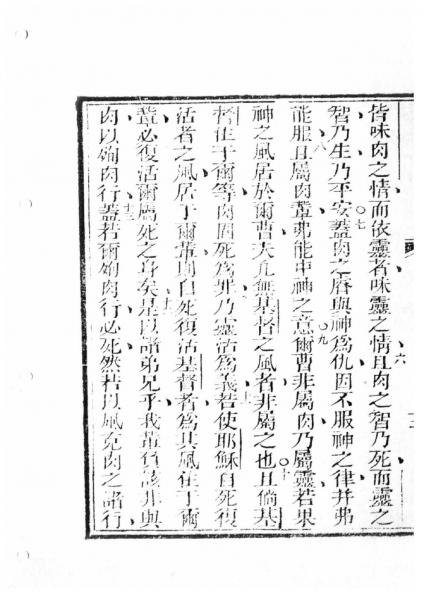 皆味肉之情而依靈者味靈之情六且肉之智乃死而靈之
智乃生乃平安七蓋肉之厝與神為仇因不服神之律并弗
能服八且屬肉輩弗能中神之意九爾曹非屬肉乃屬靈若果
神之風居於爾曹夫凢無基督之風者非屬之也十且倘基
督在于爾等肉固死為罪乃靈活為義十一若使耶穌自死復
活者之風居于爾輩則自死復活基督者為其風在于爾
輩必復活爾屬死之身矣十二是以諸弟兄乎我輩負該非與
肉以殉肉行十三蓋若爾殉肉行必死然若以風克肉之諸行